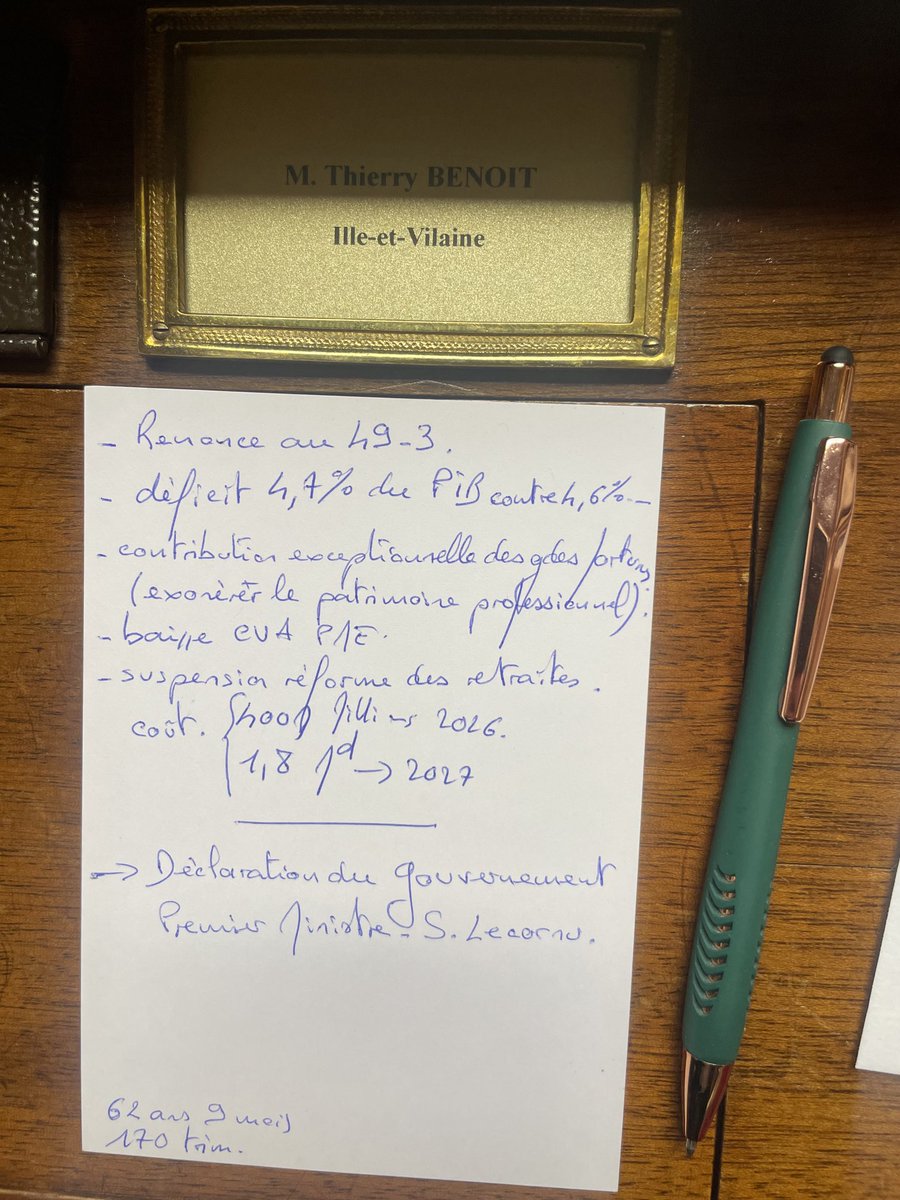 M. Thierry BENOIT
Ille-et-Vilaine
- Renonce au 49-3.
- déficit 4,7% du PIB contre 4,6%-
- contribution exceptionnelle des gdes fortunes
(exonérer le patrimoine professionnel).
- baisse CVA PME.
- suspension réforme des retraites.
coût. {400 Millions 2026.
{1,8 Md → 2027
→ Déclaration du gouvernement
Premier Ministre - S. Lecornu.
62 ans 9 mois
170 trim.